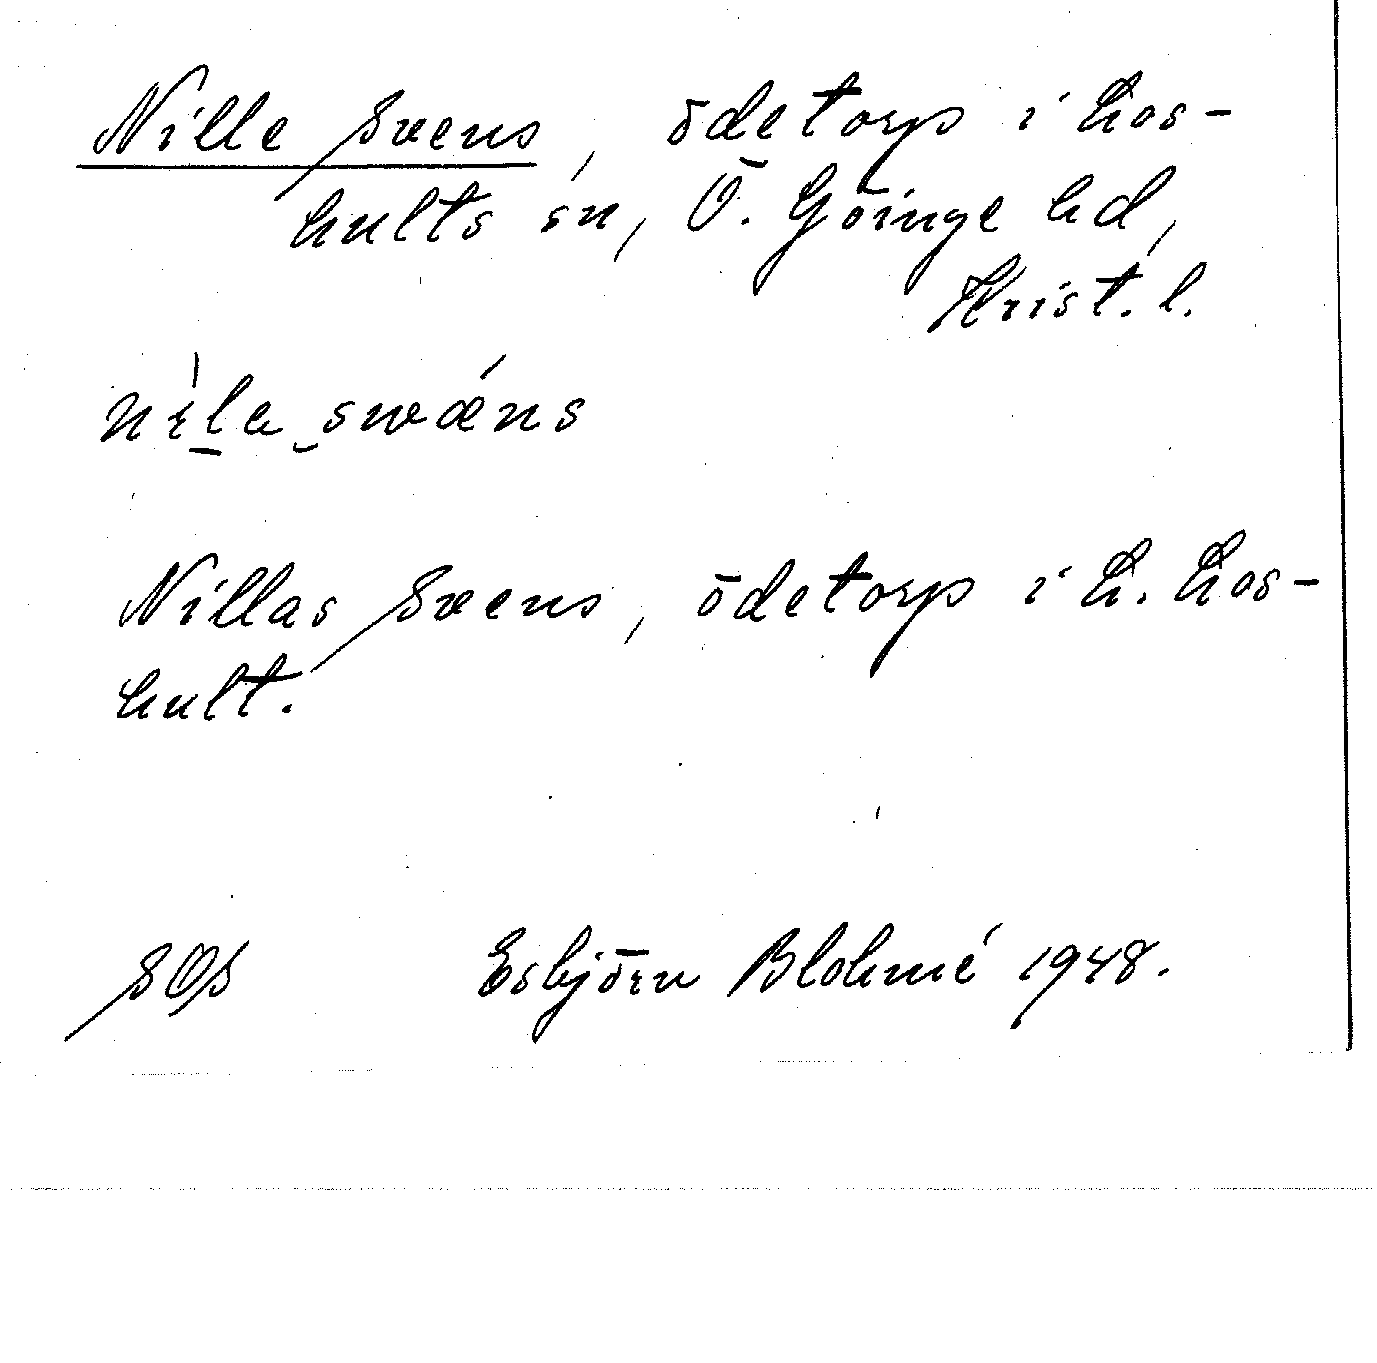 Nille Svens, ödetorp i Hos-
hults sn, Ö. Göinge hd,
Krist. l.
nìla svǽns
Nillas Svens, ödetorp i H. Hos-
hult.
SOS Esbjörn Blohmé 1948.